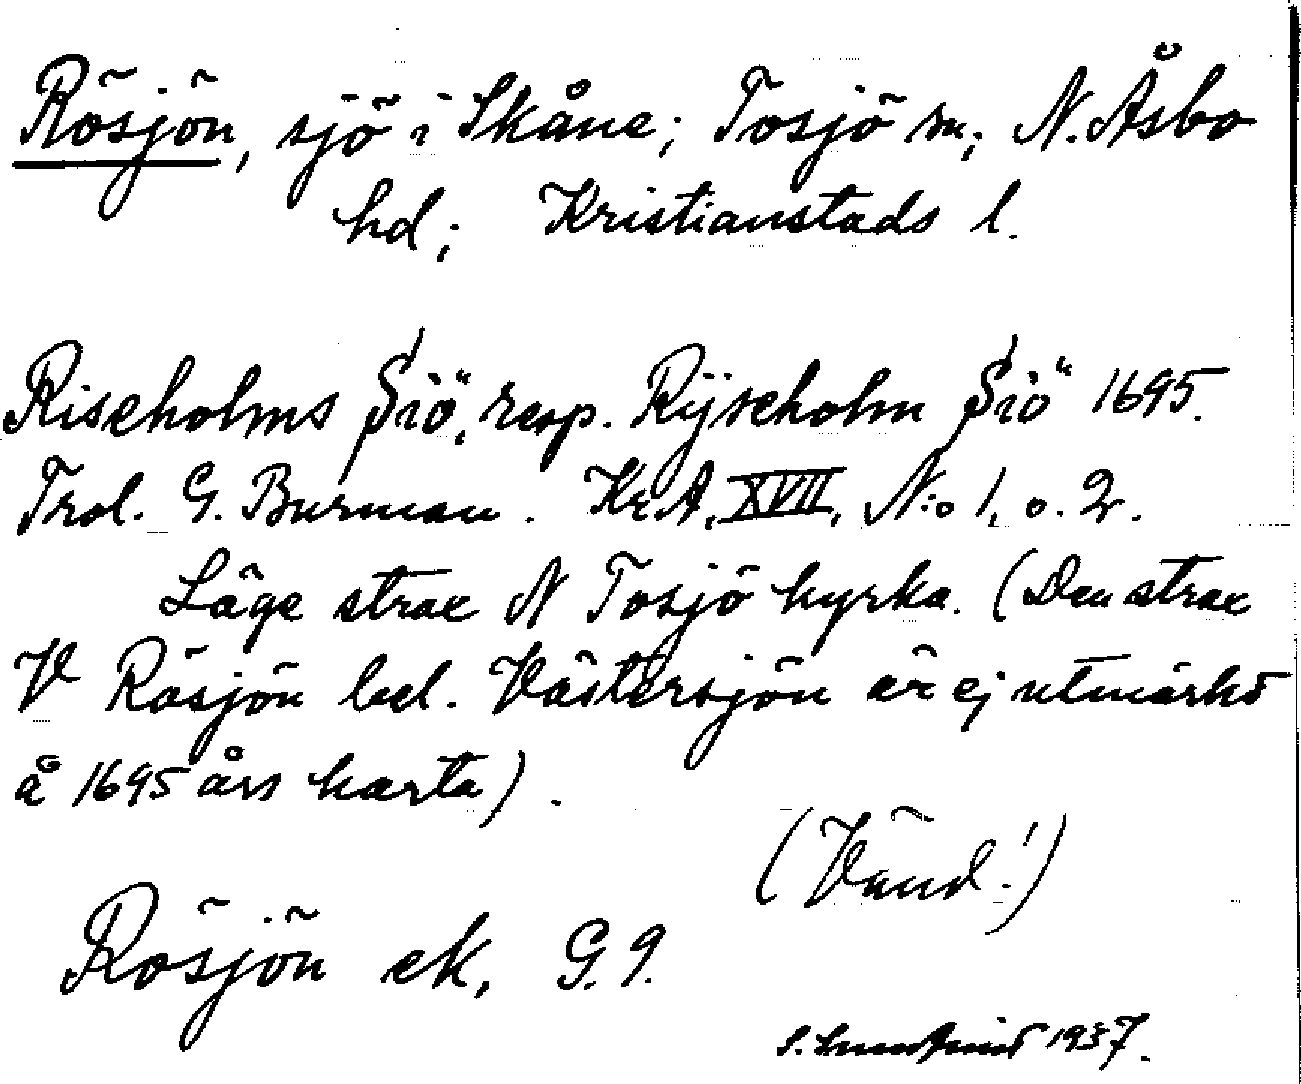 Rösjön, sjö i Skåne; Tosjö sn; N. Åsbo
hd; Kristianstads l.
Riseholms Siö, resp. Rijseholm Siö 1695.
Trol. G. Burman. Kr.A. XVII, N:o 1, o. 2.
Läge strax N Tosjö kyrka. (Den strax
V Rösjön bel. Västersjön är ej utmärkt
å 1695 års karta).
(Vänd!)
Rösjön ek, G. 9.
1937.